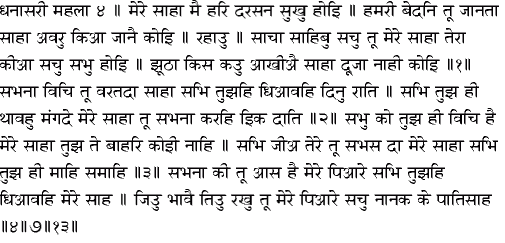 धनासरी महला ४ ॥ मेरे साहा मै हरि दरसन सुखु होइ ॥ हमरी बेदनि तू जानता
साहा अवरु किआ जानै कोइ ॥ रहाउ ॥ साचा साहिबु सचु तू मेरे साहा तेरा
कीआ सचु सभु होइ ॥ झूठा किस कउ आखीऐ साहा दूजा नाही कोइ ॥१॥
सभना विचि तू वरतदा साहा सभि तुझहि धिआवहि दिनु राति ॥ सभि तुझ ही
थावहु मंगदे मेरे साहा तू सभना करहि इिक दाति ॥२॥ सभु को तुझ ही विचि है
मेरे साहा तुझ ते बाहरि कोई नाहि ॥ सभि जीअ तेरे तू सभस दा मेरे साहा सभि
तुझ ही माहि समाहि ॥३॥ सभना की तू आस है मेरे पिआरे सभि तुझहि
धिआवहि मेरे साह ॥ जिउ भावै तिउ रखु तू मेरे पिआरे सचु नानक के पातिसाह
॥४॥७॥१३॥